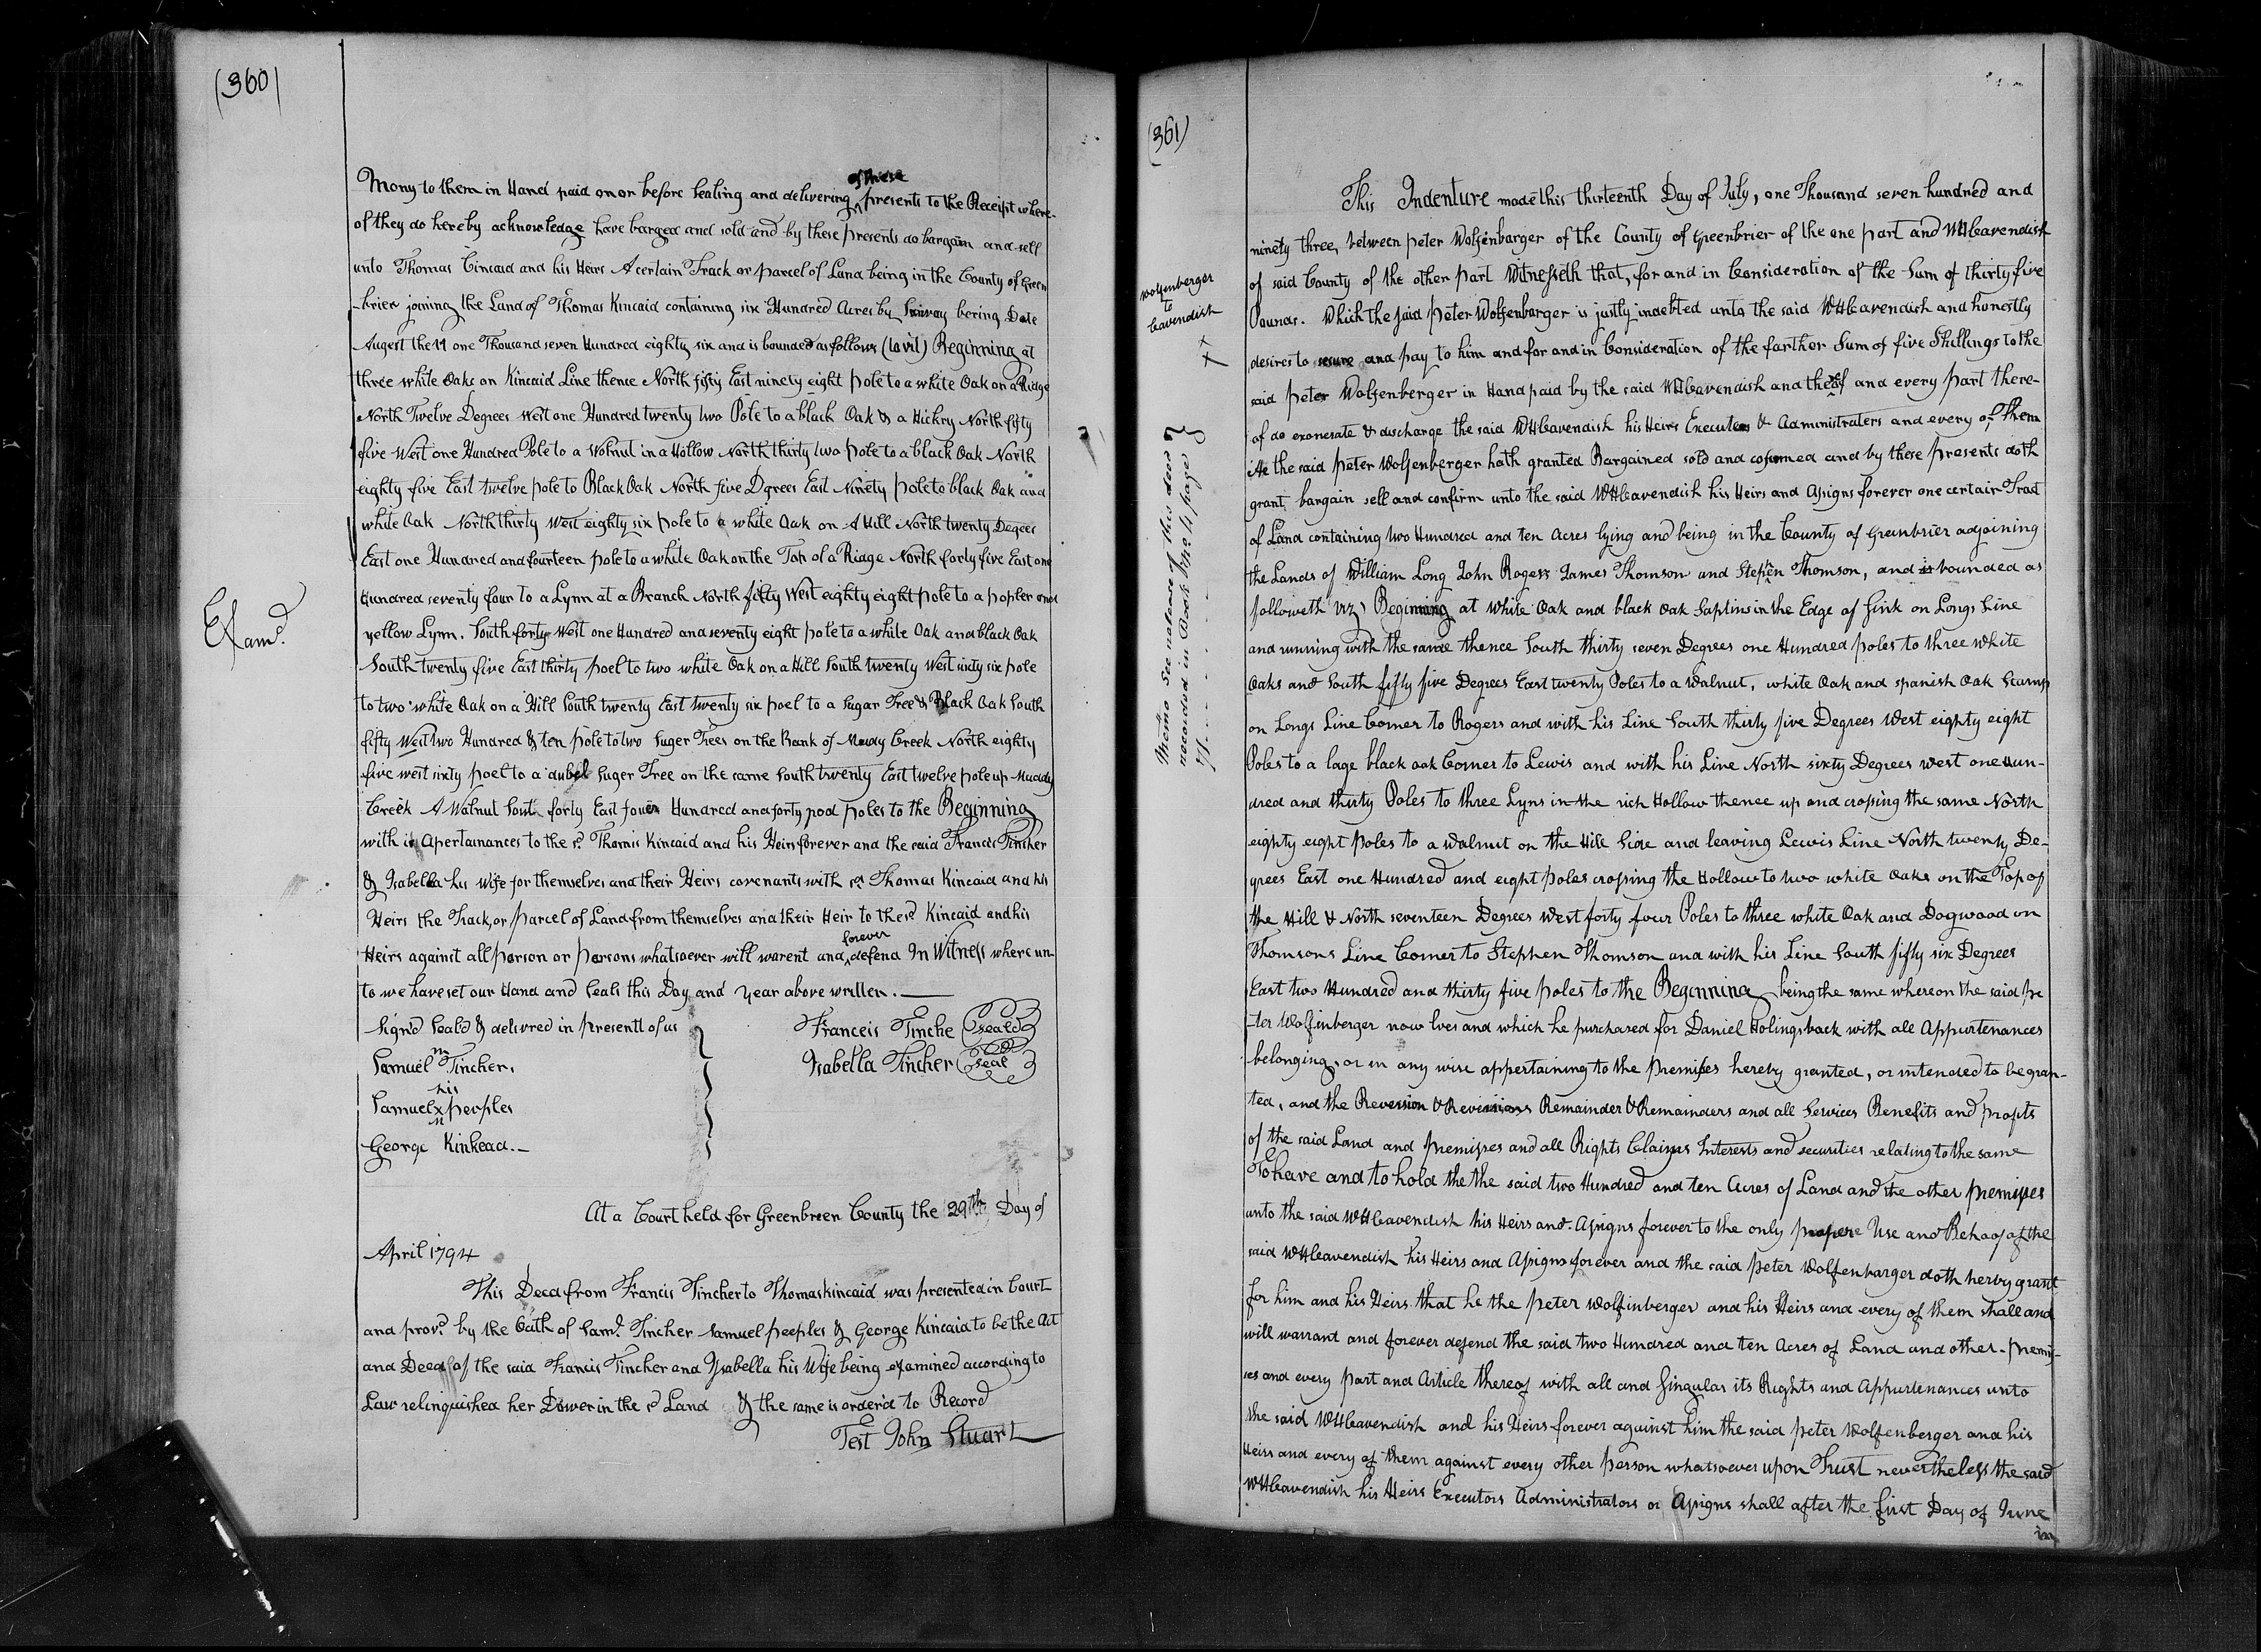 (360)
Mony to them in Hand paid on or before sealing and delivering of these presents to the Receipt where-
of they do hereby acknowledge have barged and sold and by these presents do bargain and sell
unto Thomas Cincaid and his Heirs A certain Track or parcel of Land being in the County of Green
-brier joining the Land of Thomas Kincaid containing six Hundred Acres by bering Date
Augest the 11 one Thousand seven Hundred eighty six and is bounded as follows (to vit) Beginning at
three white Oaks on Kincaid Line thence North fifty East ninety eight pole to a white Oak on a Ridge
North Twelve Degrees West one Hundred twenty two Pole to a black Oak & a Hickry North fifty
five West one Hundred Pole to a Wolnut in a Hollow North thirty two pole to a black Oak North
eighty five East twelve pole to Black Oak North five Dgrees East Ninety pole to black Oak and
white Oak North thirty West eighty six pole to a white Oak on A Hill North twenty Degees
East one Hundred and fourteen pole to a white Oak on the Top of a Ridge North forty five East one
Hundred seventy four to a Lynn at a Branch North fifty West eighty eight pole to a popler and
Examd.
yellow Lynn. South forty West one Hundred and seventy eight pole to a white Oak and black Oak
South twenty five East thirty poel to two white Oak on a Hill South twenty West sixty six pole
to two white Oak on a Hill South twenty East twenty six poel to a Sugar Tree & Black Oak South
fifty West two Hundred & ten pole to two Suger Trees on the Bank of Mudy Creek North eighty
five west sixty poel to a dubel Suger Tree on the same South twenty East twelve pole up Muddy
Creek A Walnut Sout forty East four Hundred and forty pod poles to the Beginning
with it Apertainances to the sd. Thomis Kincaid and his Heirs forever and the said Francis Tincher
& Isabella his Wife for themselves and their Heirs covenants with sd Thomas Kincaid and his
Heirs the Track or parcel of Land from themselves and their Heir to the sd. Kincaid and his
Heirs against all person or persons whatsoever will warent and forever defend In Witness where un-
to we have set our Hand and Seals this Day and year above written.
Sign'd Seald & delivred in presentl of us
Franceis Tinche (seald)
Samuel m Tincher.
Isabella Tincher (seal)
his
Samuel x peoples
m
George Kinkead.
At a Court held for Greenbreen County the 29th Day of
April 1794
This Deed from Francis Tincher to Thomas Kincaid was presented in Court
and provd. by the Oath of Saml. Tincher Samuel peeples & George Kincaid to be the Act
and Deed of the said Francis Tincher and Isabella his Wife being examined according to
Law relinquished her Dower in the sd Land & the same is order'd to Record
Test John Stuart
(361)
Wolfenberger
to
Cavendish
Memo See release of this deed
recorded in Book No. 4 page
This Indenture made this thirteenth Day of July, one Thousand seven hundred and
ninety three, between peter Wolfenbarger of the County of Greenbrier of the one part and WHCavendish
of said County of the other part Witnesseth that, for and in Consideration of the Sum of thirty five
Pounds. Which the said Peter Wolfenbarger is justly indebted unto the said WHCavendish and honestly
desires to secure and pay to him and for and in Consideration of the farther Sum of five Shillings to the
said peter Wolfenberger in Hand paid by the said WHCavendish and thereof and every part there-
of do exonerate & discharge the said WHCavendish his Heirs Executors & Administraters and every of them
He the said peter Wolfenberger hath granted Bargained sold and cofirmed and by these presents doth
grant bargain sell and confirm unto the said WHCavendish his Heirs and Assigns forever one certain Tract
of Land containing two Hundred and ten Acres lying and being in the County of Greenbrier adjoining
the Lands of William Long John Rogers James Thomson and Stephen Thomson, and is bounded as
followeth viz) Begining at White Oak and black Oak Saplins in the Edge of Sink on Longs Line
and running with the same thence South thirty seven Degrees one Hundred poles to three white
Oaks and South fifty five Degrees East twenty Poles to a Walnut, white Oak and spanish Oak Scrump
on Longs Line Corner to Rogers and with his Line South thirty five Degrees West eighty eight
Poles to a lage black oak Corner to Lewis and with his Line North sixty Degrees west one Hun-
dred and thirty Poles to three Lyns in the rich Hollow thence up and crossing the same North
eighty eight poles to a Walnut on the Hill Side and leaving Lewis Line North twenty De-
grees East one Hundred and eight poles crossing the Hollow to two white Oaks on the Top of
the Hill & North seventeen Degrees West forty four Poles to three white Oak and Dogwood on
Thomsons Line Corner to Stephen Thomson and with his Line South fifty six Degrees
East two Hundred and thirty five poles to the Beginning being the same whereon the said pe
-ter Wolfinberger now lves and which he purchased for Daniel Holingsback with all Appurtenances
belonging, or in any wise appertaining to the premises hereby granted, or intended to be gran-
ted, and the Reversion & Reversions Remainder & Remainders and all Services Benefits and profits
of the said Land and premisses and all Rights Claims Interests and securities relating to the same
To have and to hold the the said two Hundred and ten Acres of Land and the other premisses
unto the said WHCavendish his Heirs and Assigns forever to the only propere Use and Behoof of the
said WHCavendish his Heirs and Assigns forever and the said peter Wolfenbarger doth herby grant
for him and his Heirs that he the peter Wolfinberger and his Heirs and every of them shall and
will warrant and forever defend the said two Hundred and ten Acres of Land and other premis-
ses and every part and Article thereof with all and Singular its Rights and Appurtenances unto
the said WHCavendish and his Heirs forever against him the said peter Wolfenberger and his
Heirs and every of them against every other person whatsoever upon Trust nevertheless the said
WHCavendish his Heirs Executors Administrators or Assigns shall after the first Day of June
in